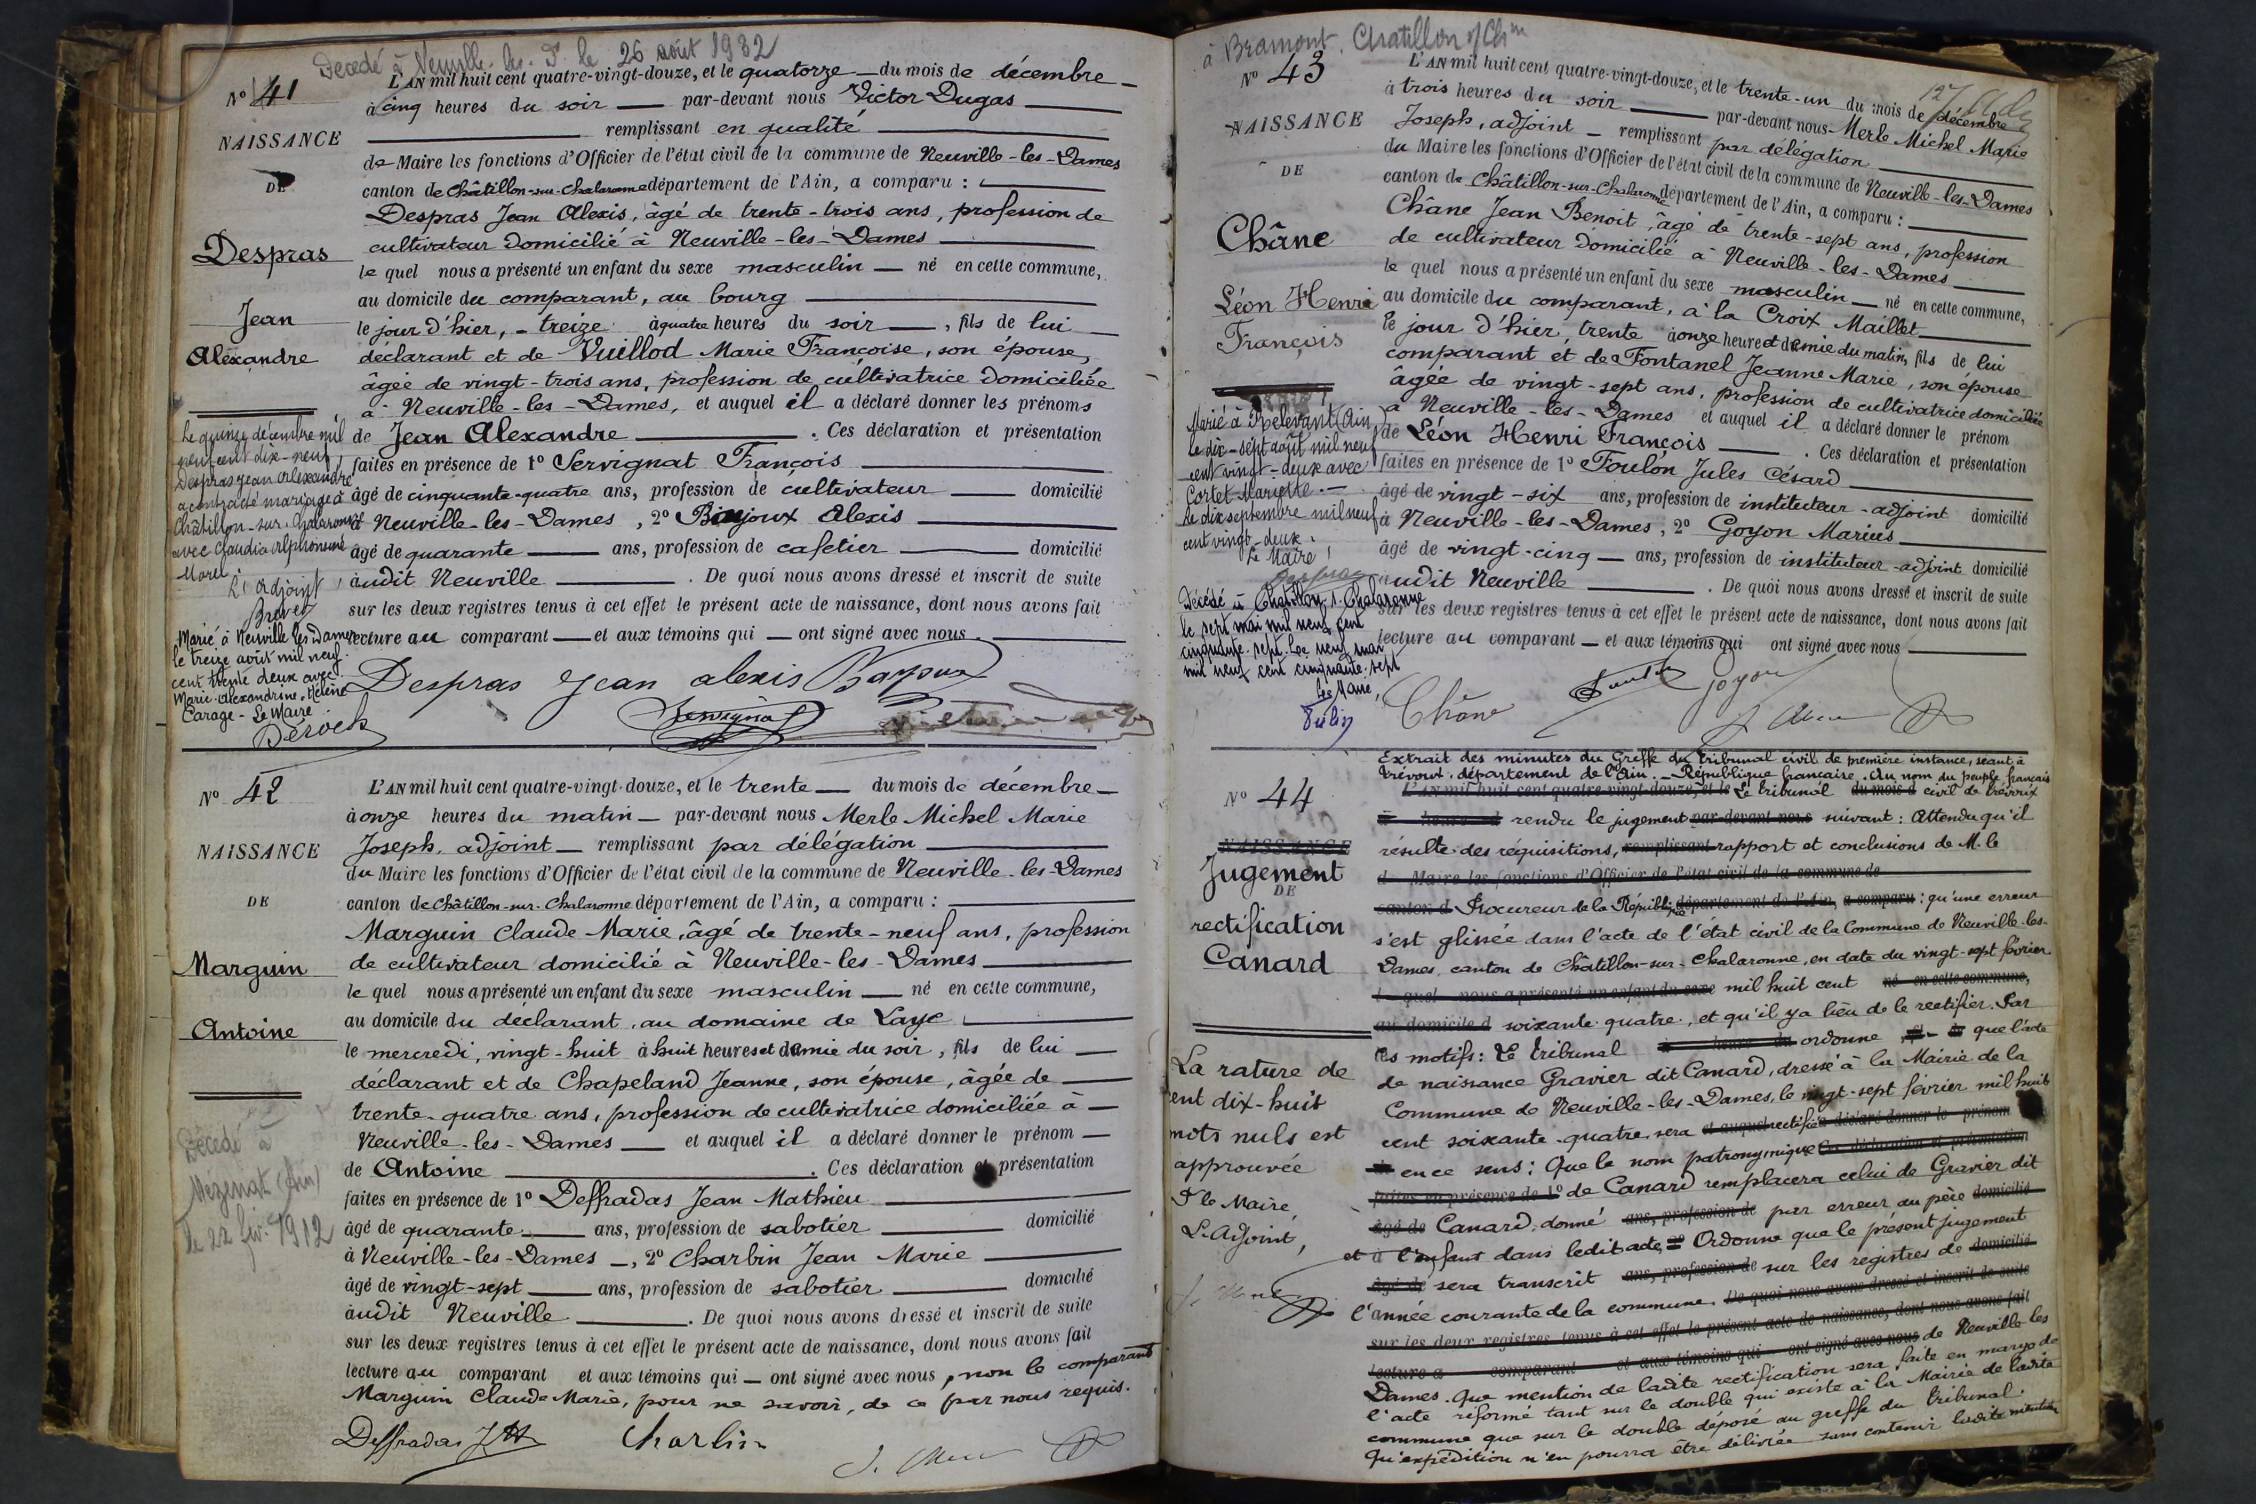 Décédé à Neuville-les-D. le 26 août 1982
N° 41
NAISSANCE
DE
Despras
Jean
Alexandre
L'AN mil huit cent quatre-vingt-douze, et le quatorze du mois de décembre
à cinq heures du soir par-devant nous Victor Dugas
remplissant en qualité
de Maire les fonctions d'Officier de l'état civil de la commune de Neuville-les-Dames
canton de Châtillon-sur-Chalaronne département de l'Ain, a comparu :
Despras Jean Alexis, âgé de trente-trois ans, profession de
cultivateur domicilié à Neuville-les-Dames
le quel nous a présenté un enfant du sexe masculin né en cette commune,
au domicile du comparant, au bourg
le jour d'hier, treize à quatre heures du soir, fils de lui
déclarant et de Vuillod Marie Françoise, son épouse,
âgée de vingt-trois ans, profession de cultivatrice domiciliée
à Neuville-les-Dames, et auquel il a déclaré donner les prénoms
de Jean Alexandre . Ces déclaration et présentation
faites en présence de 1° Servignat François
âgé de cinquante-quatre ans, profession de cultivateur domicilié
à Neuville-les-Dames, 2° Bajoux Alexis
âgé de quarante ans, profession de cafetier domicilié
audit Neuville . De quoi nous avons dressé et inscrit de suite
sur les deux registres tenus à cet effet le présent acte de naissance, dont nous avons fait
lecture au comparant et aux témoins qui ont signé avec nous.
Le quinze décembre mil
neuf cent dix-neuf,
Despras Jean Alexandre
a contracté mariage à
Châtillon-sur-Chalaronne
avec Claudia Alphonsine
Morel.
L'adjoint,
Marié à Neuville les Dames
le treize août mil neuf
cent trente deux avec
Marie-Alexandrine-Hélène
Carage - Le Maire
Despras Jean alexis Bajoux
Servignat
N° 42
NAISSANCE
DE
Marguin
Antoine
Décédé à
Vézenat (Ain)
le 22 fév. 1912
L'AN mil huit cent quatre-vingt-douze, et le trente du mois de décembre
à onze heures du matin par-devant nous Merle Michel Marie
Joseph, adjoint remplissant par délégation
du Maire les fonctions d'Officier de l'état civil de la commune de Neuville-les-Dames
canton de Châtillon-sur-Chalaronne département de l'Ain, a comparu :
Marguin Claude-Marie, âgé de trente-neuf ans, profession
de cultivateur domicilié à Neuville-les-Dames
le quel nous a présenté un enfant du sexe masculin né en cette commune,
au domicile du déclarant, au domaine de Laye
le mercredi, vingt-huit à huit heures et demie du soir, fils de lui
déclarant et de Chapeland Jeanne, son épouse, âgée de
trente-quatre ans, profession de cultivatrice domiciliée à
Neuville-les-Dames et auquel il a déclaré donner le prénom
de Antoine . Ces déclaration et présentation
faites en présence de 1° Deffradas Jean Mathieu
âgé de quarante ans, profession de sabotier domicilié
à Neuville-les-Dames, 2° Charbin Jean Marie
âgé de vingt-sept ans, profession de sabotier domicilié
audit Neuville . De quoi nous avons dressé et inscrit de suite
sur les deux registres tenus à cet effet le présent acte de naissance, dont nous avons fait
lecture au comparant et aux témoins qui ont signé avec nous, non le comparant
Marguin Claude-Marie, pour ne savoir, de ce par nous requis.
Deffradas JM Charbin J. Merle
à Bramont, Chatillon s/Chne
N° 43
NAISSANCE
DE
Châne
Léon Henri
François
L'AN mil huit cent quatre-vingt-douze, et le trente-un du mois de décembre
à trois heures du soir par-devant nous Merle Michel Marie
Joseph, adjoint remplissant par délégation
du Maire les fonctions d'Officier de l'état civil de la commune de Neuville-les-Dames
canton de Châtillon-sur-Chalaronne département de l'Ain, a comparu :
Chane Jean Benoit, âgé de trente-sept ans, profession
de cultivateur domicilié à Neuville-les-Dames
le quel nous a présenté un enfant du sexe masculin né en cette commune,
au domicile du comparant, à la Croix Maillet
le jour d'hier, trente à onze heure et demie du matin, fils de lui
comparant et de Fontanel Jeanne Marie, son épouse
âgée de vingt-sept ans, profession de cultivatrice domiciliée
à Neuville-les-Dames et auquel il a déclaré donner le prénom
de Léon Henri François . Ces déclaration et présentation
faites en présence de 1° Foulon Jules César
âgé de vingt-six ans, profession de instituteur-adjoint domicilié
à Neuville-les-Dames, 2° Goyon Marius
âgé de vingt-cinq ans, profession de instituteur-adjoint domicilié
audit Neuville . De quoi nous avons dressé et inscrit de suite
sur les deux registres tenus à cet effet le présent acte de naissance, dont nous avons fait
lecture au comparant et aux témoins qui ont signé avec nous
Marié à Relevant (Ain)
le dix-sept août mil neuf
cent vingt-deux avec
Cortet Mariette.
Le dix septembre mil neuf
cent vingt-deux.
Le Maire,
Décédé à Chatillon s. Chalaronne
le sept mai mil neuf cent
cinquante-sept. Le neuf mai
mil neuf cent cinquante-sept
Le Maire,
Châne Goyon J. Merle
N° 44
NAISSANCE
Jugement
DE
rectification
Canard
La rature de
cent dix-huit
mots nuls est
approuvée
P le Maire,
L'Adjoint,
J. Merle
Extrait des minutes du Greffe du tribunal civil de première instance, séant à
Trévoux, département de l'Ain. République française. Au nom du peuple français
L'AN mil huit cent quatre-vingt-douze, et le Le tribunal du mois d civil de Trévoux
à heures d rendu le jugement par-devant nous suivant : Attendu qu'il
résulte des réquisitions, remplissant rapport et conclusions de M. le
d Maire les fonctions d'Officier de l'état civil de la commune de
canton d Procureur de la République département de l'Ain, a comparu : qu'une erreur
s'est glissée dans l'acte de l'état civil de la Commune de Neuville-les-
Dames, canton de Châtillon-sur-Chalaronne, en date du vingt-sept février
l quel nous a présenté un enfant du sexe mil huit cent né en cette commune,
au domicile d soixante quatre, et qu'il y a lieu de le rectifier. Par
ces motifs : Le tribunal à heure du ordonne que l'acte
de naissance Gravier dit Canard, dressé à la Mairie de la
Commune de Neuville-les-Dames, le vingt-sept février mil huit
cent soixante-quatre, sera et auquel rectifié a déclaré donner le prénom
de en ce sens : Que le nom patronymique Ces déclaration et présentation
faites en présence de 1° de Canard remplacera celui de Gravier dit
âgé de Canard, donné ans, profession de par erreur au père domicilié
et à l'enfant dans ledit acte 2° Ordonne que le présent jugement
âgé de sera transcrit ans, profession de sur les registres de domicilié
l'année courante de la commune. De quoi nous avons dressé et inscrit de suite
sur les deux registres tenus à cet effet le présent acte de naissance, dont nous avons fait
lecture a comparant et aux témoins qui ont signé avec nous de Neuville-les
Dames. Que mention de ladite rectification sera faite en marge de
l'acte réformé tant sur le double qui existe à la Mairie de ladite
commune que sur le double déposé au greffe du tribunal.
Qu'expédition n'en pourra être délivrée sans contenir ladite mention